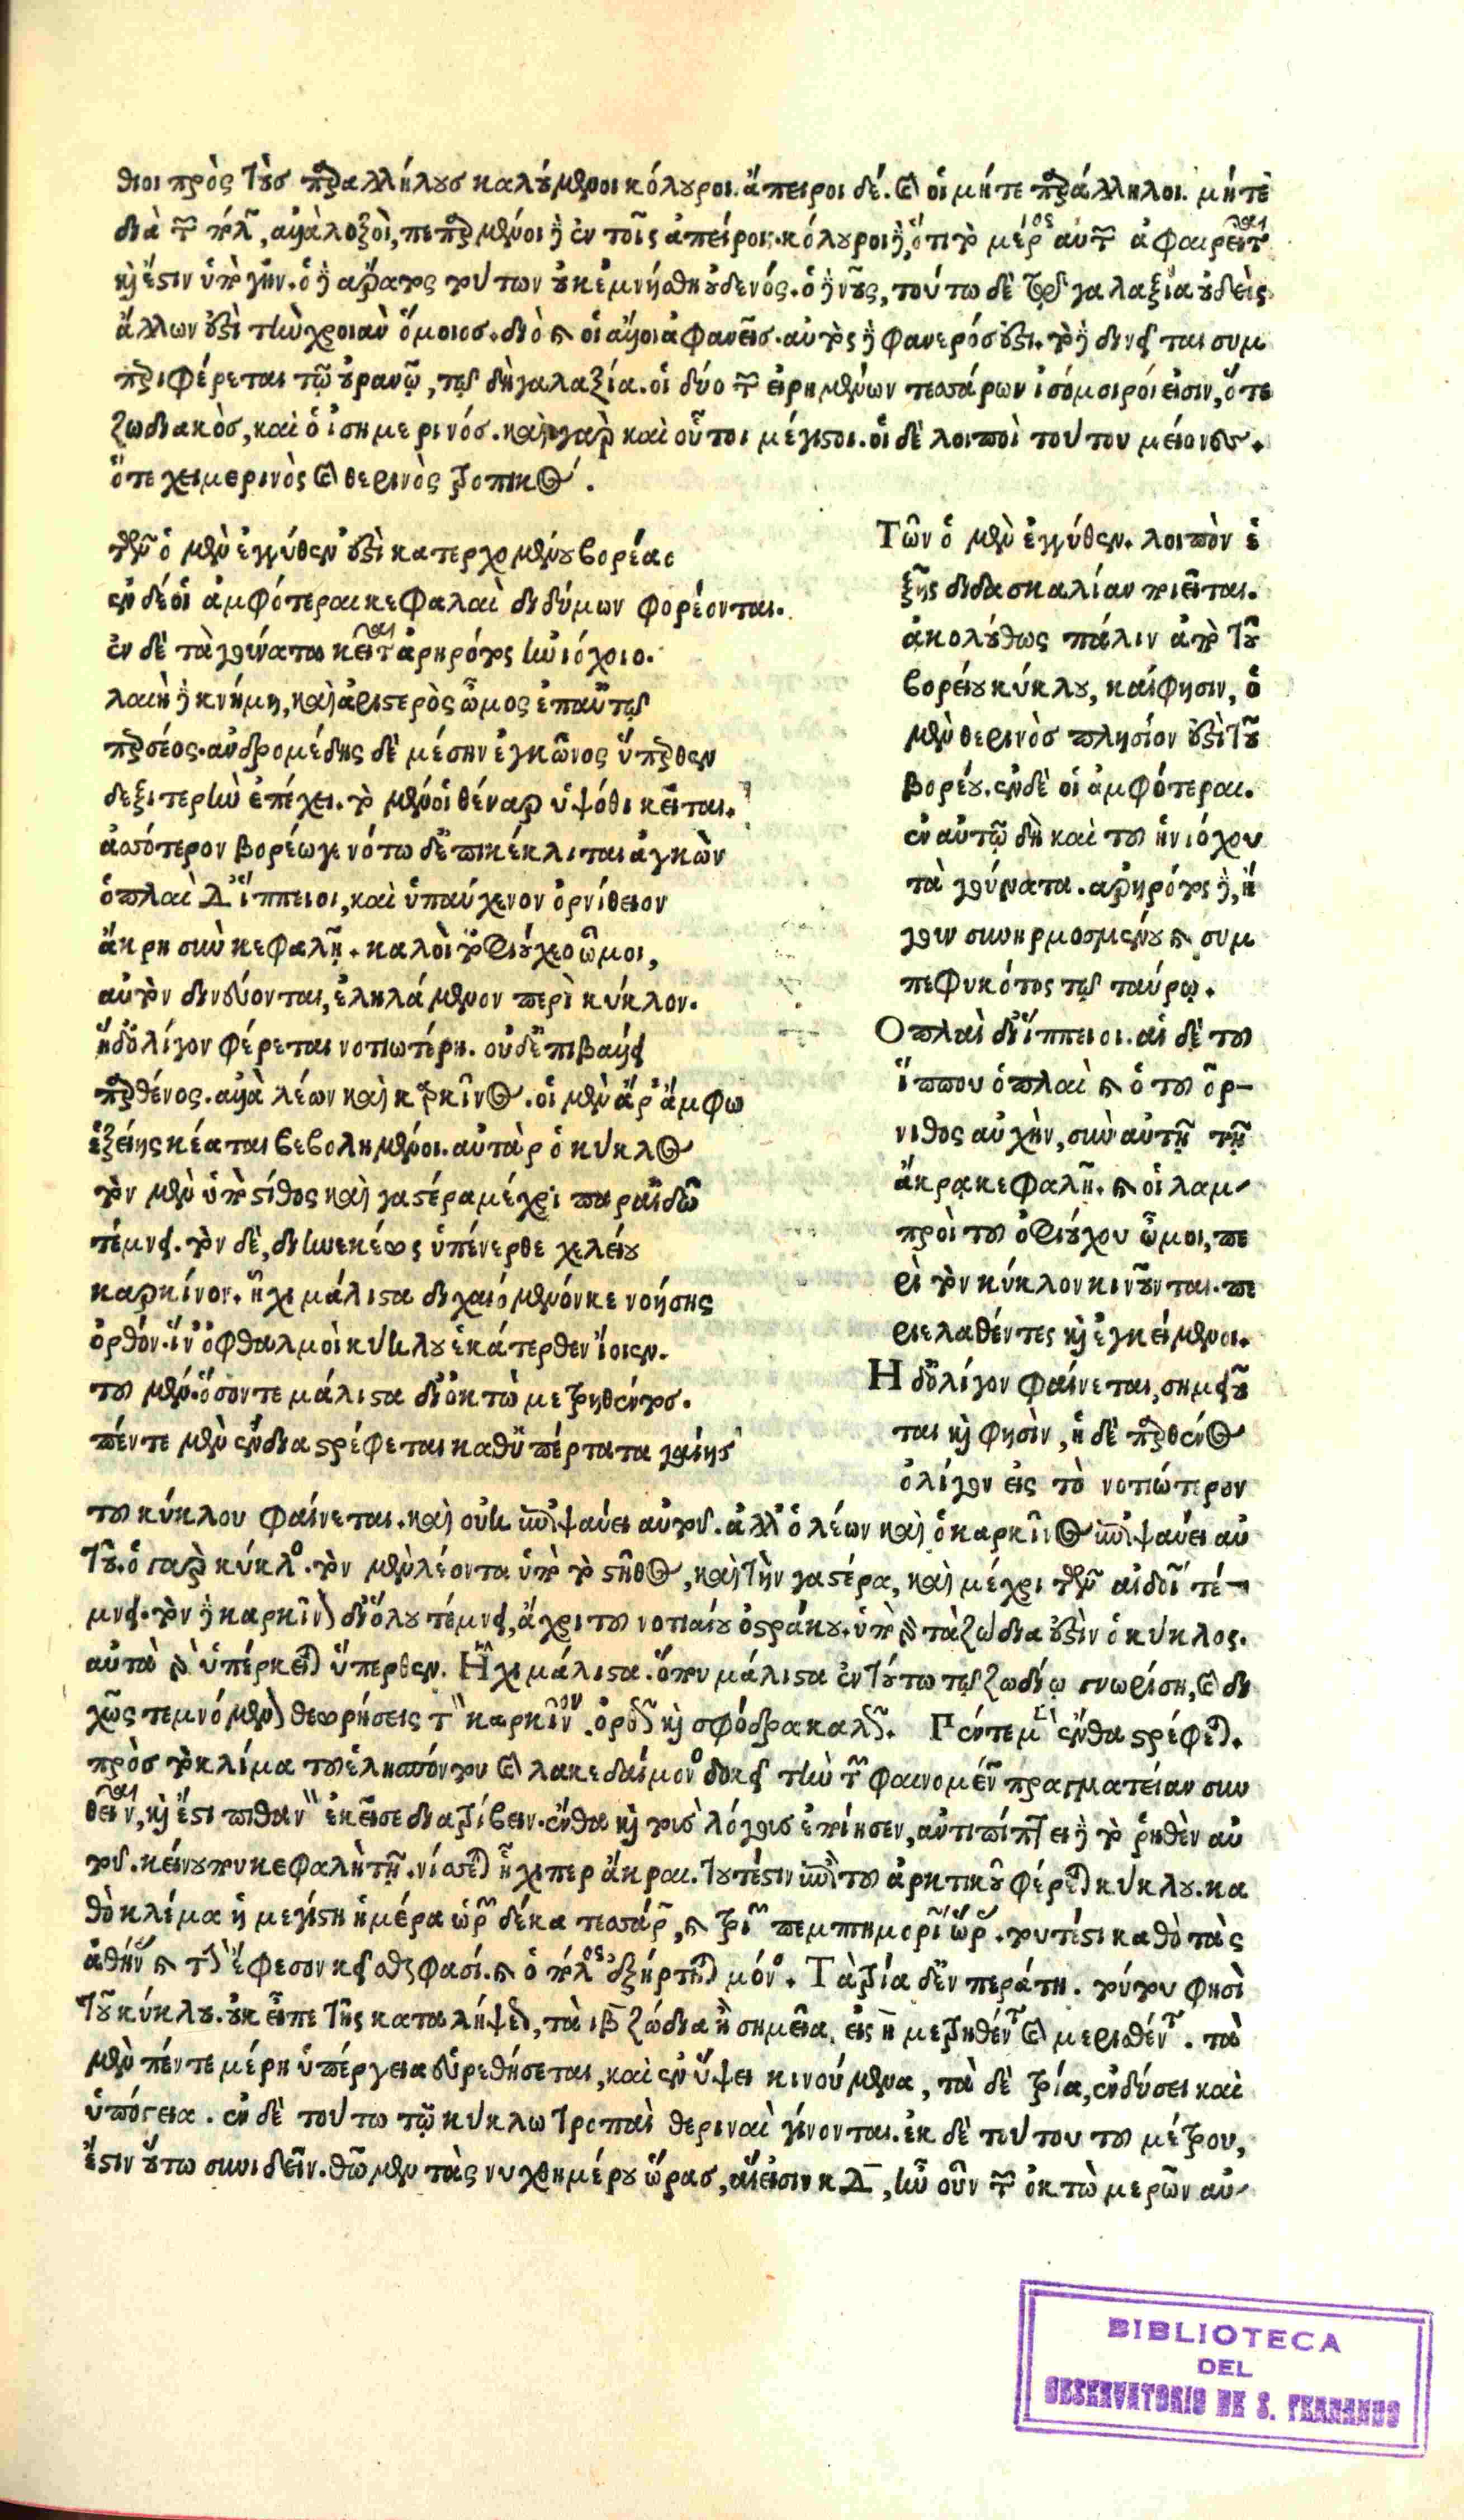 θιοι πρὸς τοὺς παραλλήλους καλούμενοι κόλουροι. ἄπειροι δέ. καὶ οἱ μήτε παράλληλοι. μήτε
διὰ τῶν πόλων, ἀλλὰ λοξοὶ,
καὶ ἔστιν ὑπὸ γῆν. ὁ δὲ ἄρατος τούτων οὐκ ἐμνήσθη οὐδενός. τούτω δὲ τῷ γαλαξία οὐδεὶς
ἄλλων ἐστὶ τὴν χροιὰν ὅμοιος. διὸ καὶ οἱ ἄλλοι ἀφανεῖς. αὐτὸς δὲ φανερός ἐστι. συμ
περιφέρεται τῷ οὐρανῷ, τῷ δὴ γαλαξία. οἱ δύο τῶν εἰρημένων τεσσάρων ἰσόμοιροί εἰσιν, ὅ τε
ζωδιακὸς, καὶ ὁ ἰσημερινός. καὶ γὰρ καὶ οὗτοι μέγιστοι. οἱ δὲ λοιποὶ τούτου μείονες.
ὅ τε χειμερινὸς καὶ θερινὸς τροπικός.
τῶν ὁ μὲν ἐγγύθεν ἐστὶ κατερχομένου βορέαο
ἐν δέ οἱ ἀμφότεραι κεφαλαὶ διδύμων φορέονται.
ἐν δὲ τὰ γούνατα κεῖται ἀρηρότος ἡνιόχοιο.
λαιὴ δὲ κνήμη, καὶ ἀριστερὸς ὦμος ἐπ' αὐτῷ
περσέος. ἀνδρομέδης δὲ μέσην ἀγκῶνος ὕπερθεν
δεξιτερὴν ἐπέχει. τὸ μέν οἱ θέναρ ὑψόθι κεῖται.
ἀσσότερον βορέω γε νότω δ' ἐπικέκλιται ἀγκὼν
ὁπλαὶ δ' ἵππειοι, καὶ ὑπαύχενον ὀρνίθειον
ἄκρη σὺν κεφαλῇ. καλοὶ τ' ὀφιούχεο ὦμοι,
αὐτὸν δινεύονται, ἐληλάμενον περὶ κύκλον.
ἡ δ' ὀλίγον φέρεται νοτιωτέρη. οὐδ' ἐπιβάλλει
παρθένος. ἀλλὰ λέων καὶ καρκῖνος. οἱ μὲν ἄρ' ἄμφω
ἑξείης κέαται βεβολημένοι. αὐτὰρ ὁ κύκλος
τὸν μὲν ὑπὸ στῆθος καὶ γαστέρα μέχρι παρ' αἰδῶ
τέμνει. τὸν δὲ, διηνεκέως ὑπένερθε χελείου
καρκίνον. ἧχι μάλιστα διχαιόμενόν κε νοήσης
ὀρθόν. ἵν' ὀφθαλμοὶ κύκλου ἑκάτερθεν ἴοιεν.
τοῦ μὲν. ὅσον τε μάλιστα δι' ὀκτὼ μετρηθέντος.
πέντε μὲν ἔνδια στρέφεται καθ' ὑπέρτατα γαίης
Τῶν ὁ μὲν ἐγγύθεν. λοιπὸν ἑ
ξῆς διδασκαλίαν ποιεῖται.
ἀκολούθως πάλιν ἀπὸ τοῦ
βορείου κύκλου, καί φησιν, ὁ
μὲν θερινὸς πλησίον ἐστὶ τοῦ
βορέου. ἐν δὲ οἱ ἀμφότεραι.
ἐν αὐτῷ δὴ καὶ τοῦ ἡνιόχου
τὰ γούνατα. ἀρηρότος δὲ, ἤ
γουν συνηρμοσμένου καὶ συμ
πεφυκότος τῷ ταύρῳ.
Ὁπλαὶ δ' ἵππειοι. αἱ δὲ τοῦ
ἵππου ὁπλαὶ καὶ ὁ τοῦ ὄρ-
νιθος αὐχὴν, σὺν αὐτῇ τῇ
ἄκρᾳ κεφαλῇ. καὶ οἱ λαμ-
προὶ τοῦ ὀφιούχου ὦμοι, πε
ρὶ τὸν κύκλον κινοῦνται. πε
ριελαθέντες καὶ ἐγκείμενοι.
Ἡ δ' ὀλίγον φαίνεται, σημειοῦ
ται καὶ φησὶν, ἡ δὲ παρθένος
ὀλίγον εἰς τὸ νοτιώτερον
τοῦ κύκλου φαίνεται. καὶ οὐκ ἐπιψαύει αὐτοῦ. ἀλλ' ὁ λέων καὶ ὁ καρκῖνος ἐπιψαύει αὐ
τοῦ. ὁ γὰρ κύκλος. τὸν μὲν λέοντα ὑπὸ τὸ στῆθος, καὶ τὴν γαστέρα, καὶ μέχρι τῶν αἰδοίων τέ-
μνει. τὸν δὲ καρκῖνον δι' ὅλου τέμνει, ἄχρι τοῦ νοτιαίου ὀστράκου. ὑπὸ δὲ τὰ ζώδια ἐστὶν ὁ κύκλος.
αὐτὰ δὲ ὑπέρκειται ὕπερθεν. Ἧχι μάλιστα. ὅπου μάλιστα ἐν τούτω τῷ ζωδίῳ γνωρίση, καὶ δι
χῶς τεμνόμενον θεωρήσεις τὸν καρκῖνον. ὀρθὸν καὶ σφόδρα καλῶς. Πέντε μὲν ἔνθα στρέφεται.
πρὸς τὸ κλίμα τοῦ ἑλησπόντου καὶ λακεδαίμονος δοκεῖ τὴν τῶν φαινομένων πραγματείαν συν
θεῖναι, καὶ ἔστι πιθανὸν ἐκεῖσε διατρίβειν. ἔνθα καὶ τοὺς λόγους ἐποίησεν, ἀντιπίπτει δὲ τὸ ῥηθὲν αὐ
τοῦ. κείνου που κεφαλὴ τῇ. νίσεται ἧχι περ ἄκραι. τουτέστιν ἐπὶ τοῦ ἀρκτικοῦ φέρεται κύκλου. κα
θὸ κλίμα ἡ μεγίστη ἡμέρα ὡρῶν δέκα τεσσάρων, καὶ τριῶν πεμπτημορίων ὥρας. τουτέστι καθὸ τὰς
ἀθήνας καὶ τὴν ἔφεσον κεῖσθαι φασί. καὶ ὁ πόλος ἐξήρτηται μόνος. Τὰ τρία δ' ἐν περάτη. τούτου φησὶ
τοῦ κύκλου. οὐκ εἶπε τῆς καταλήψεως, τὰ ιβ ζώδια ἢ σημεῖα, εἰς η μετρηθέντος καὶ μερισθέντος. τὰ
μὲν πέντε μέρη ὑπέργεια εὑρεθήσεται, καὶ ἐν ὕψει κινούμενα, τὰ δὲ τρία, ἐν δύσει καὶ
ὑπόγεια. ἐν δὲ τούτω τῷ κύκλω τροπαὶ θεριναὶ γίνονται. ἐκ δὲ τούτου τοῦ μέτρου,
ἔστιν οὕτω συνιδεῖν. θῶμεν τὰς νυχθημέρου ὥρας, αἵ εἰσιν κδ, ἦν οὖν τῶν ὀκτὼ μερῶν αὐ-
BIBLIOTECA
DEL
OBSERVATORIO DE S. FERNANDO